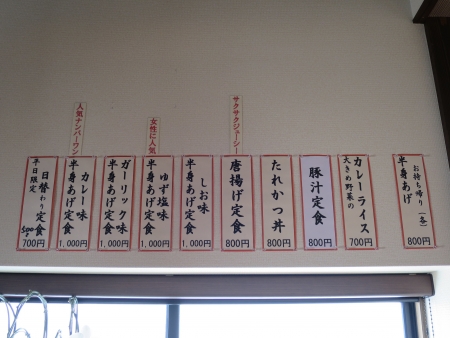 お持ち帰り(各)
半身あげ
800円
カレーライス
大きめ野菜の
700円
豚汁定食
800円
たれかつ丼
800円
サクサクジューシー
唐揚げ定食
800円
しお味
半身あげ定食
1,000円
女性に人気
ゆず塩味
半身あげ定食
1,000円
ガーリック味
半身あげ定食
1,000円
人気ナンバーワン
カレー味
半身あげ定食
1,000円
日替わり定食
平日限定
700円